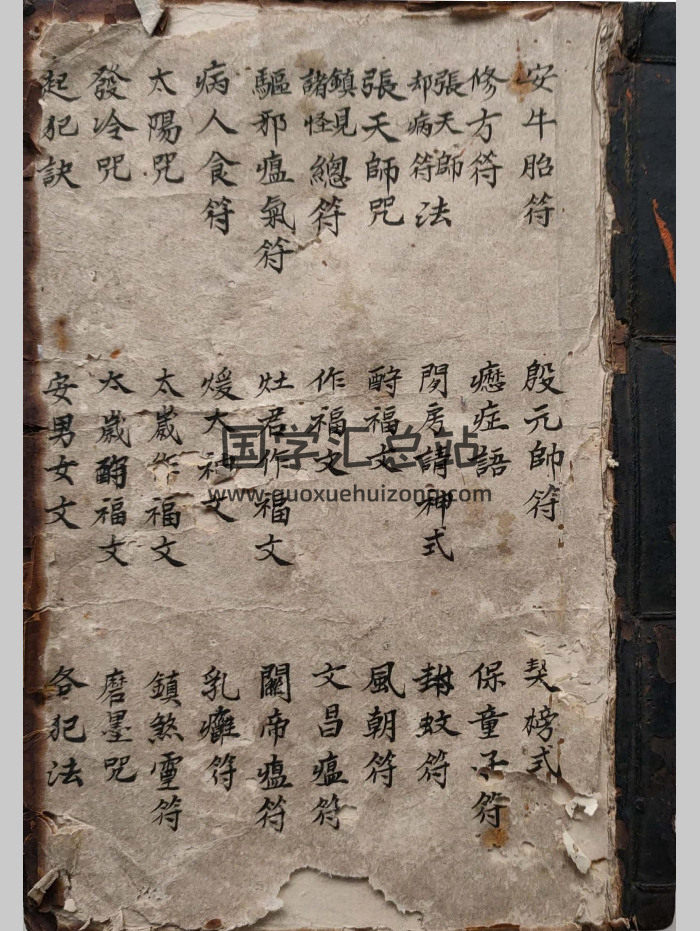 安牛胎符
修方符
張天師却病符法
張天師咒
鎮見諸怪總符
驅邪瘟氣符
病人食符
太陽咒
發冷咒
起犯訣
殷元帥符
癦症語
閱房請神式
酧福文
作福文
灶君作福文
煖大神文
太歲作福文
太歲酧福文
安男女文
契榜式
保童子符
封蚊符
風朝符
文昌瘟符
關帝瘟符
乳癰符
鎮煞靈符
磨墨咒
各犯法
国学汇总站
www.guoxuehuizong.com